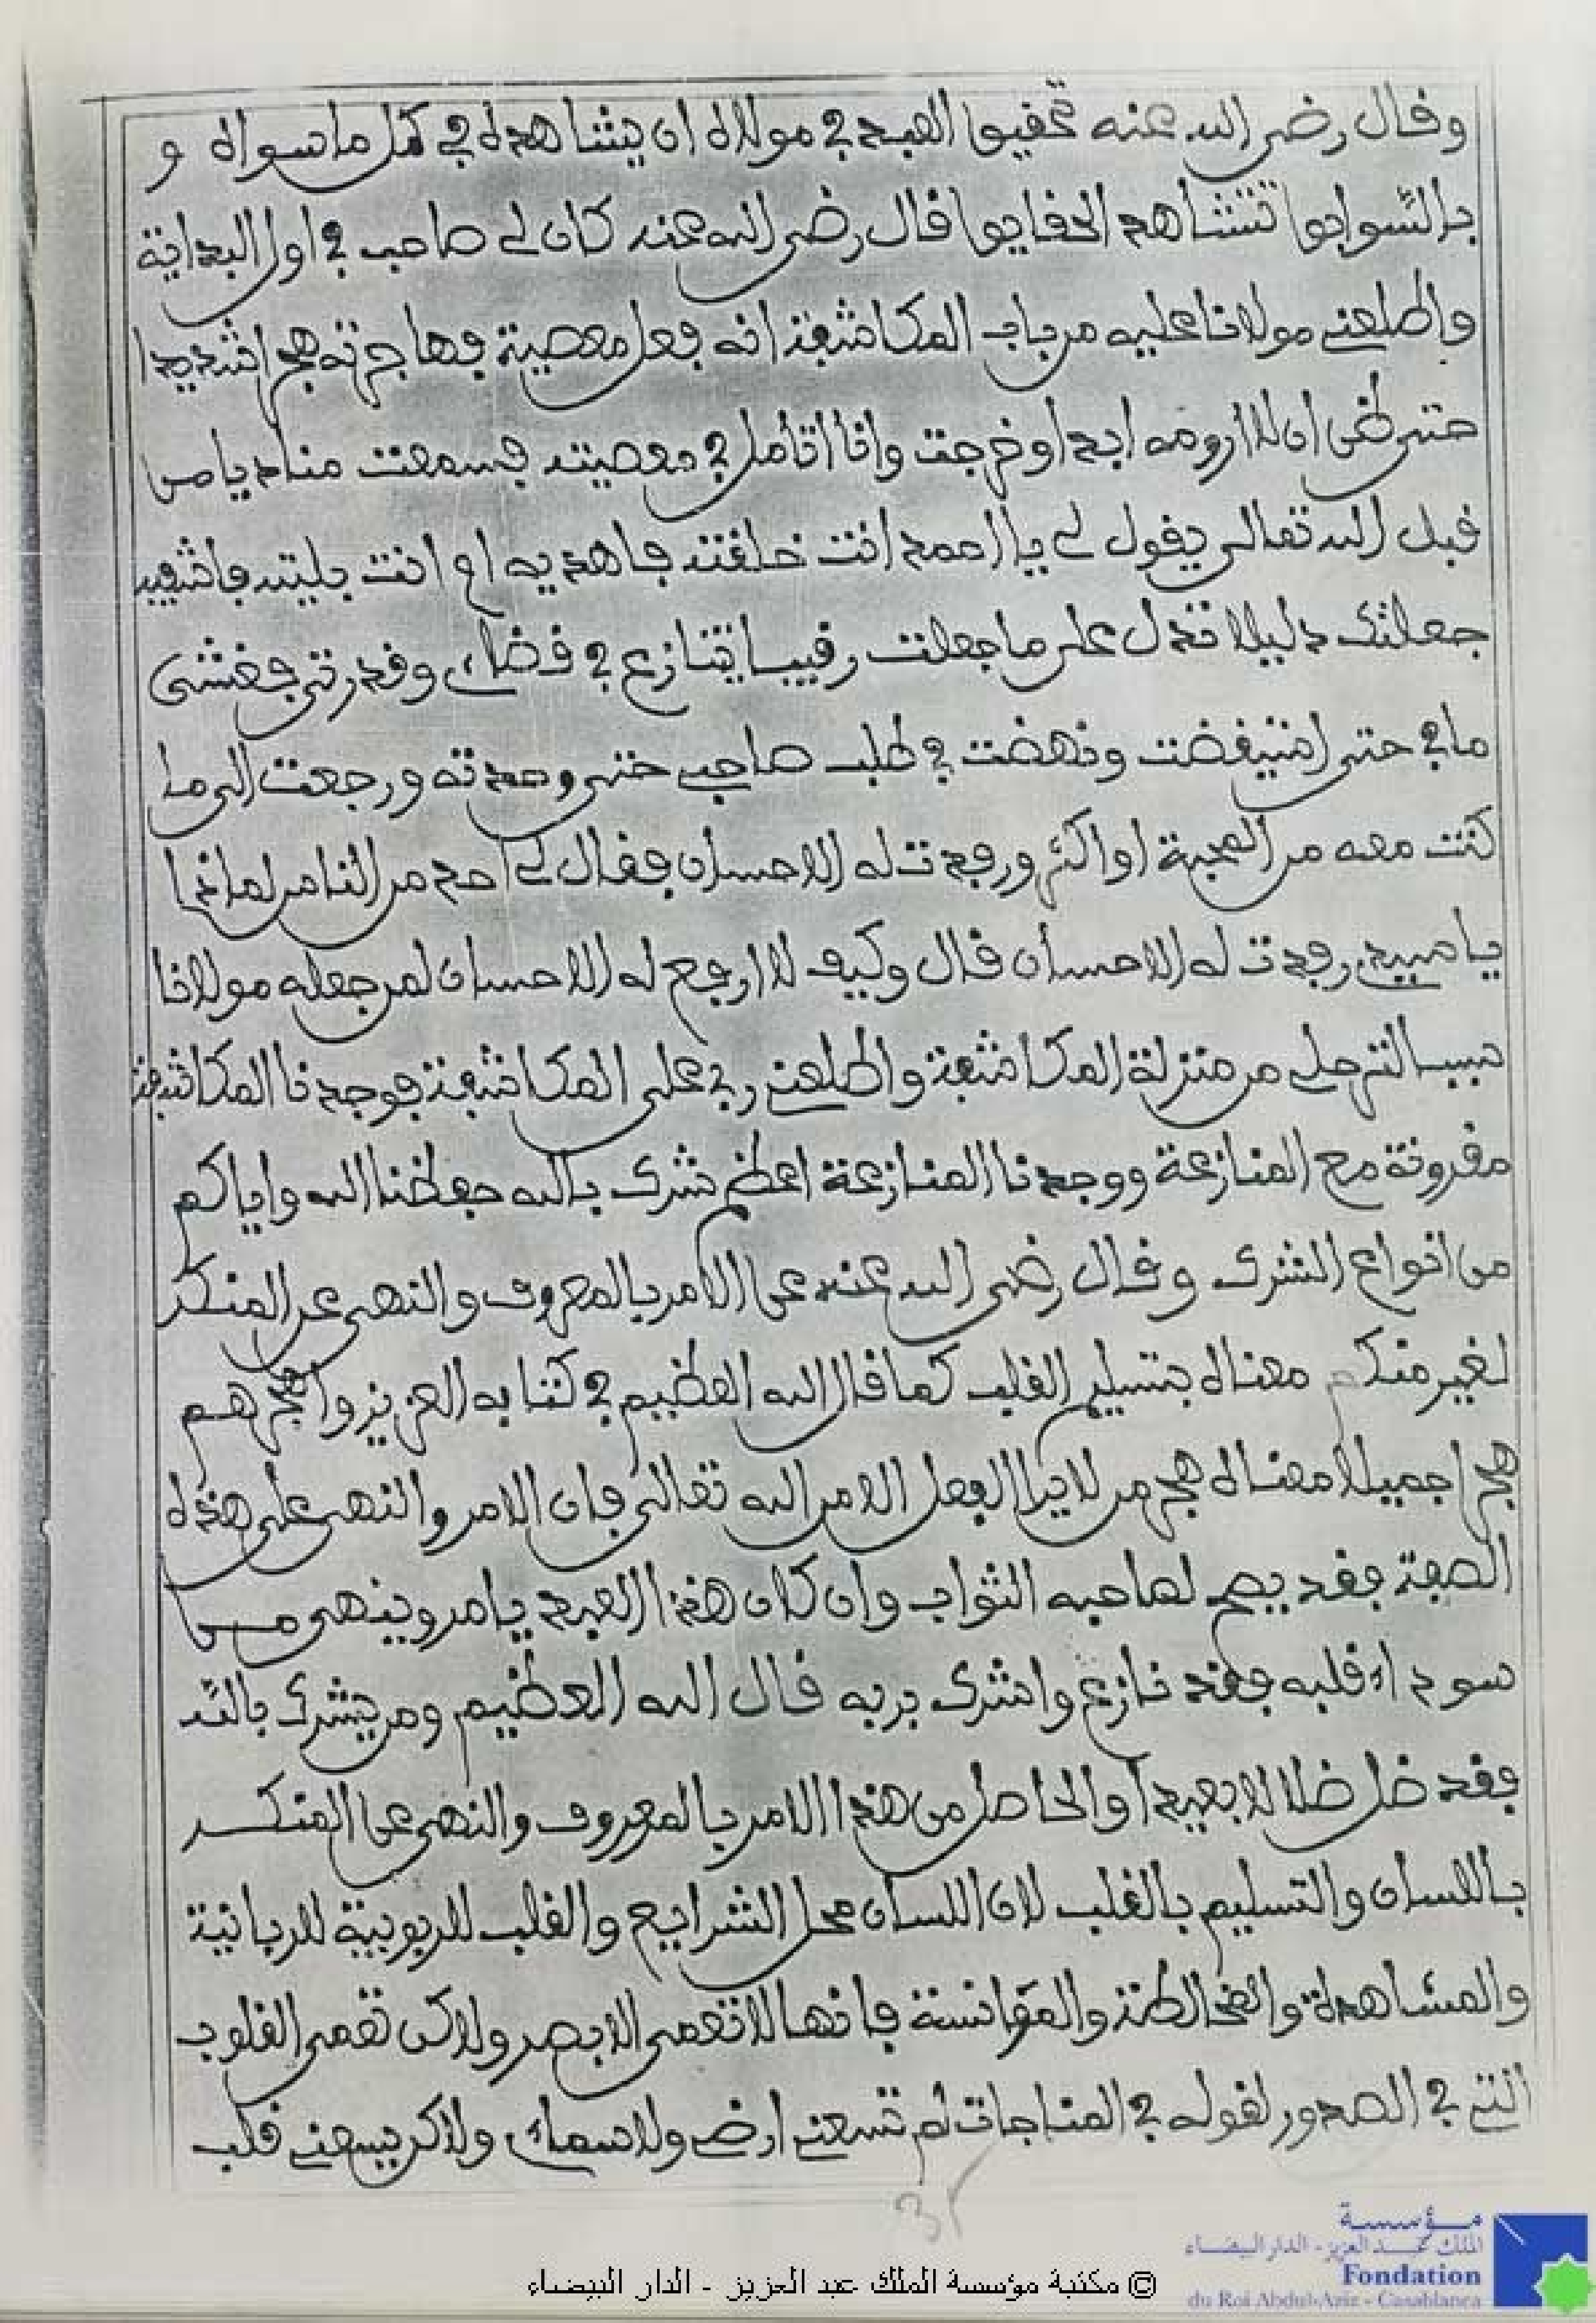 وقال رضي الله عنه تحقيق العبد في مولاه ان يشاهده في كل ما سواه و
بالسوابق تشاهد الحقايق قال رضي الله عنه كان لي صاحب في اول البداية
واطلعني مولانا عليه من باب المكاشفة انه فعل معصية فهاجرته هجرا شديدا
حتى ظن ان لا اروحه ابدا وخرجت وانا اتامل في معصيته فسمعت مناد يا من
قبل الله تعالى يقول لي يا احمد انت خلقته فاهديه او انت بليته فاشفيه
جعلتك دليلا تدل على ما جعلت رقيبا تنازع في قضاءي وقدرتي فغشي
ما بي حتى استيفضت ونهضت في طلب صاحبي حتى وجدته ورجعت الى ما
كنت معه من المحبة او اكثر ورفدت له الاحسان فقال لي احد من الناس لماذا
يا سيدي رفدت له الاحسان قال وكيف لا ارفع له الاحسان لمن جعله مولانا
سببا لترحلي من منزلة المكاشفة واطلعني ربي على المكاشفة فوجدنا المكاشفة
مقرونة مع المنازعة ووجدنا المنازعة اعظم شرك بالله حفظنا الله واياكم
من انواع الشرك وقال رضي الله عنه عن الامر بالمعروف والنهي عن المنكر
لغير منكم معناه بتسليم القلب كما قال الله العظيم في كتابه العزيز واهجرهم
هجرا جميلا معناه هجر من لا يرا الفعل الا من الله تعالى فان الامر والنهي على هذه
الصفة فقد يصح لصاحبه الثواب وان كان هذا العبد يامر وينهى من
سوداء قلبه فقد نازع واشرك بربه قال الله العظيم ومن يشرك بالله
فقد ضل ضلالا بعيدا والحاصل من هذا الامر بالمعروف والنهي عن المنكر
باللسان والتسليم بالقلب لان اللسان محل الشرايع والقلب للربوبية للربانية
والمشاهدة والمخالطة والموانسة فانها لا تعمى الابصر ولاكن تعمى القلوب
التي في الصدور لقوله في المناجات لم تسعني ارضي ولا سماءي ولاكن يسعني قلب
35
مؤسسة
الملك عبد العزيز - الدار البيضاء
Fondation
du Roi Abdul-Aziz - Casablanca
© مكتبة مؤسسة الملك عبد العزيز - الدار البيضاء